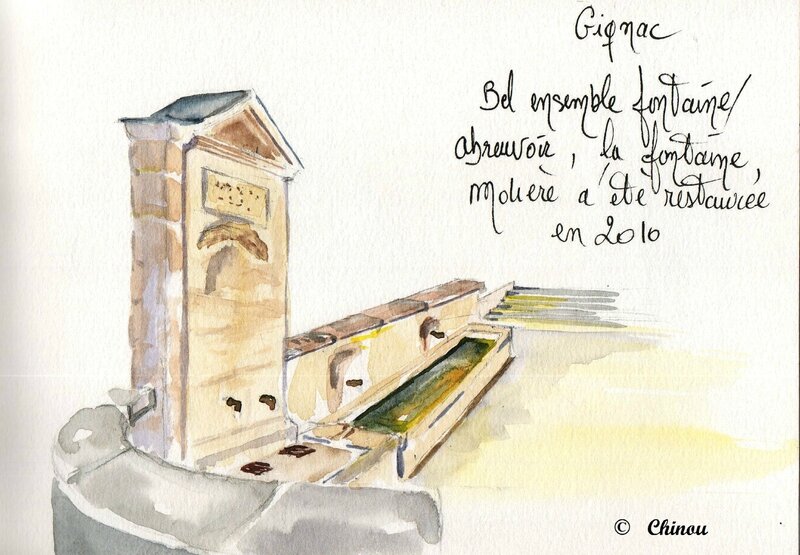 Gignac
Bel ensemble fontaine/
abreuvoir, la fontaine,
Molière a été restaurée
en 2010
© Chinou